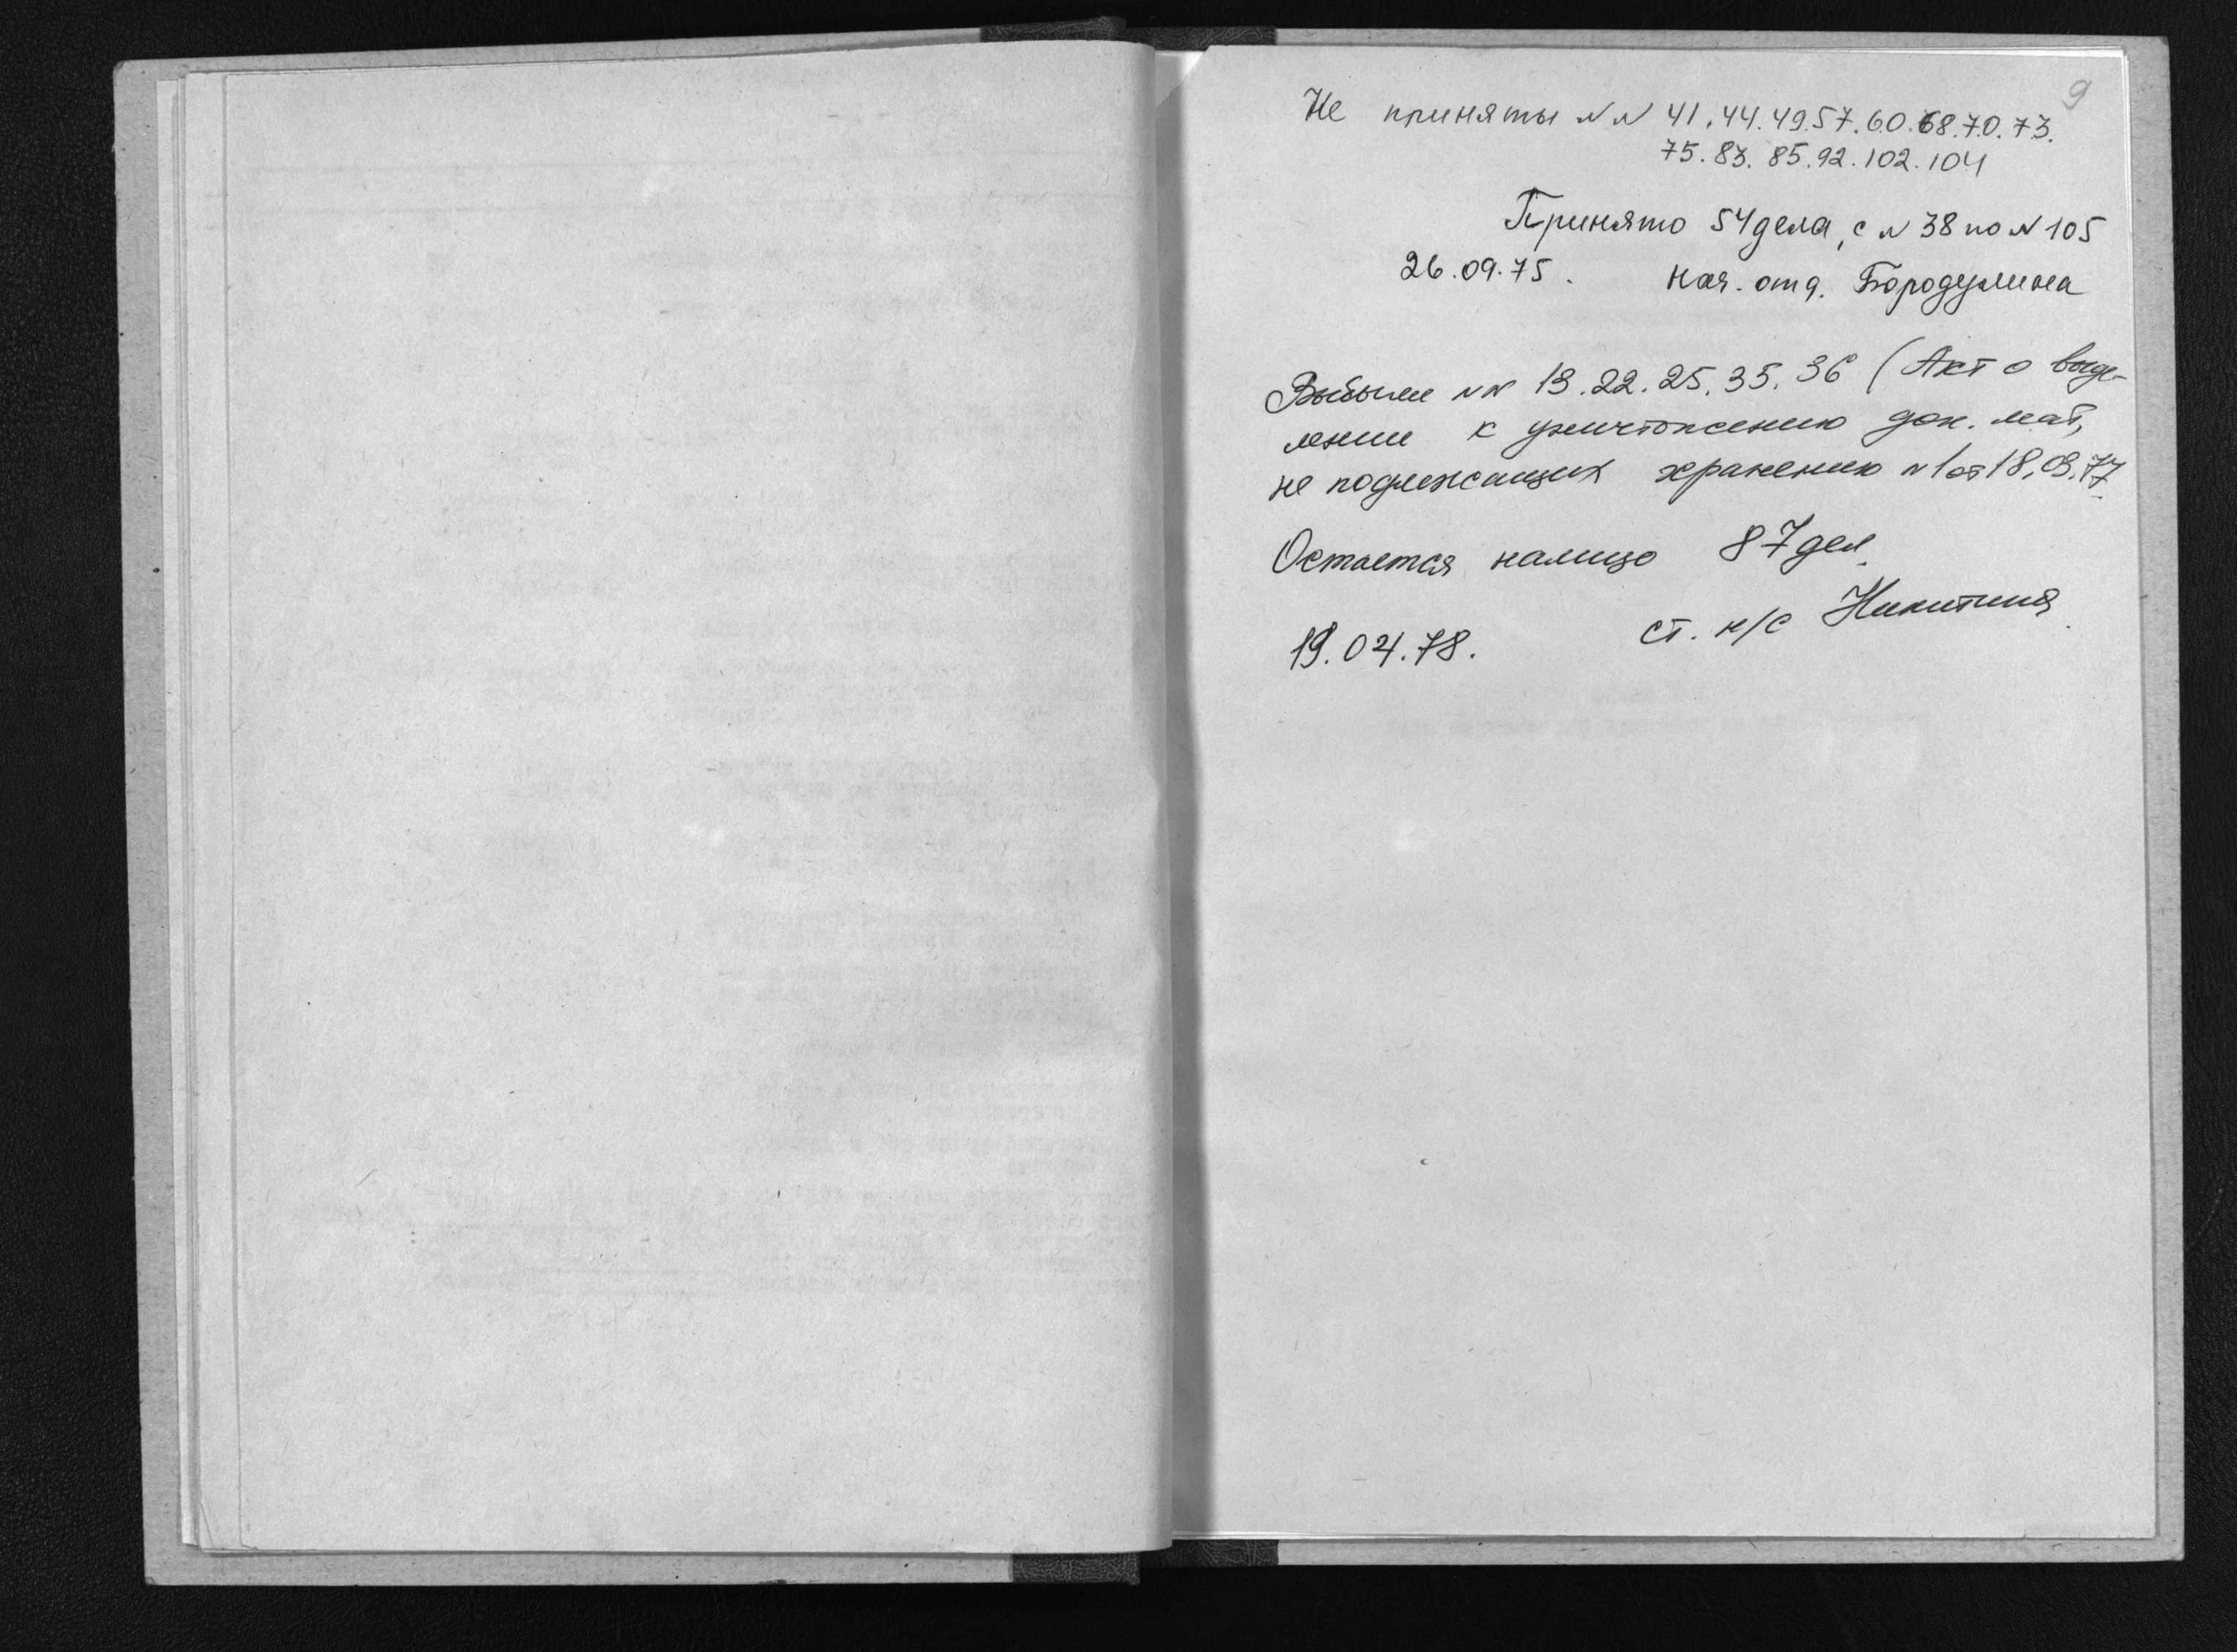 9
Не приняты NN 41.44.49.57.60.68.70.73.
75.83.85.92.102.104
Принято 54 дела, с N 38 по N 105
26.09.75. Нач. отд. Бородулина
Выбыли NN 13.22.25.35.36 (Акт о выде-
лении к уничтожению док. мат,
не подлежащих хранению N 1 от 18.03.77
Остается налицо 87 дел.
19.04.78. ст. н/с Никитина